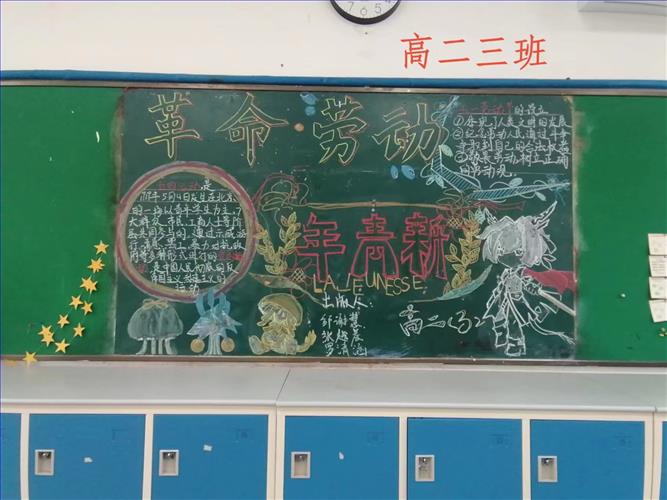 高二三班
革命劳动
五一劳动节的设立
①体现了人类文明的发展
②纪念劳动人民通过斗争
争取到自己的合法权益
③教育劳动树立正确
的劳动观。
五四运动是
1919年5月4日发生在北京
的一场以青年学生为主，广
大群众、市民、工商人士等阶
层共同参与的，通过示威游
行、请愿、罢工、暴力对抗政
府等多种形式进行的
是中国人民彻底的反
帝国主义、封建主义的
运动
年青新
LA JEUNESSE
出版人：
高二(3)